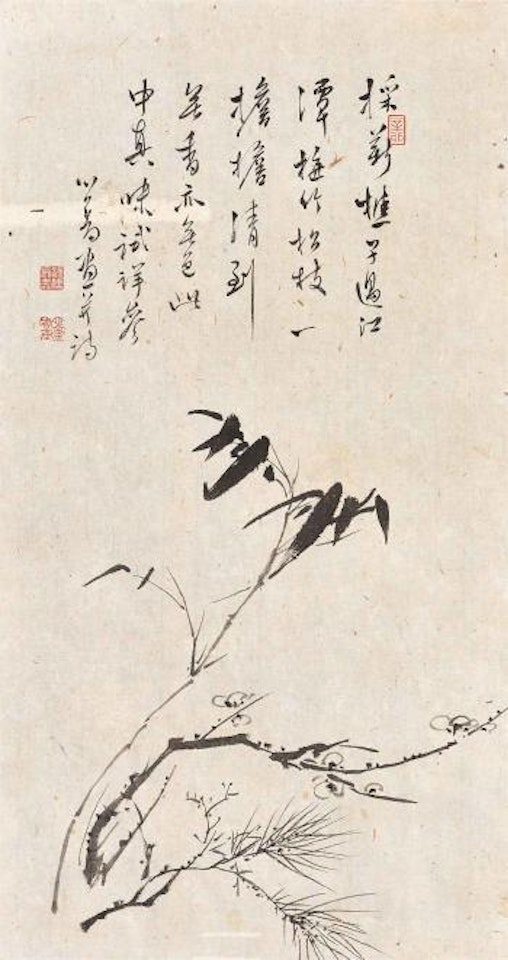 採薪樵子過江
潭梅竹松枝一
擔擔清到
無香亦無色此
中真味試詳參
畫并詩